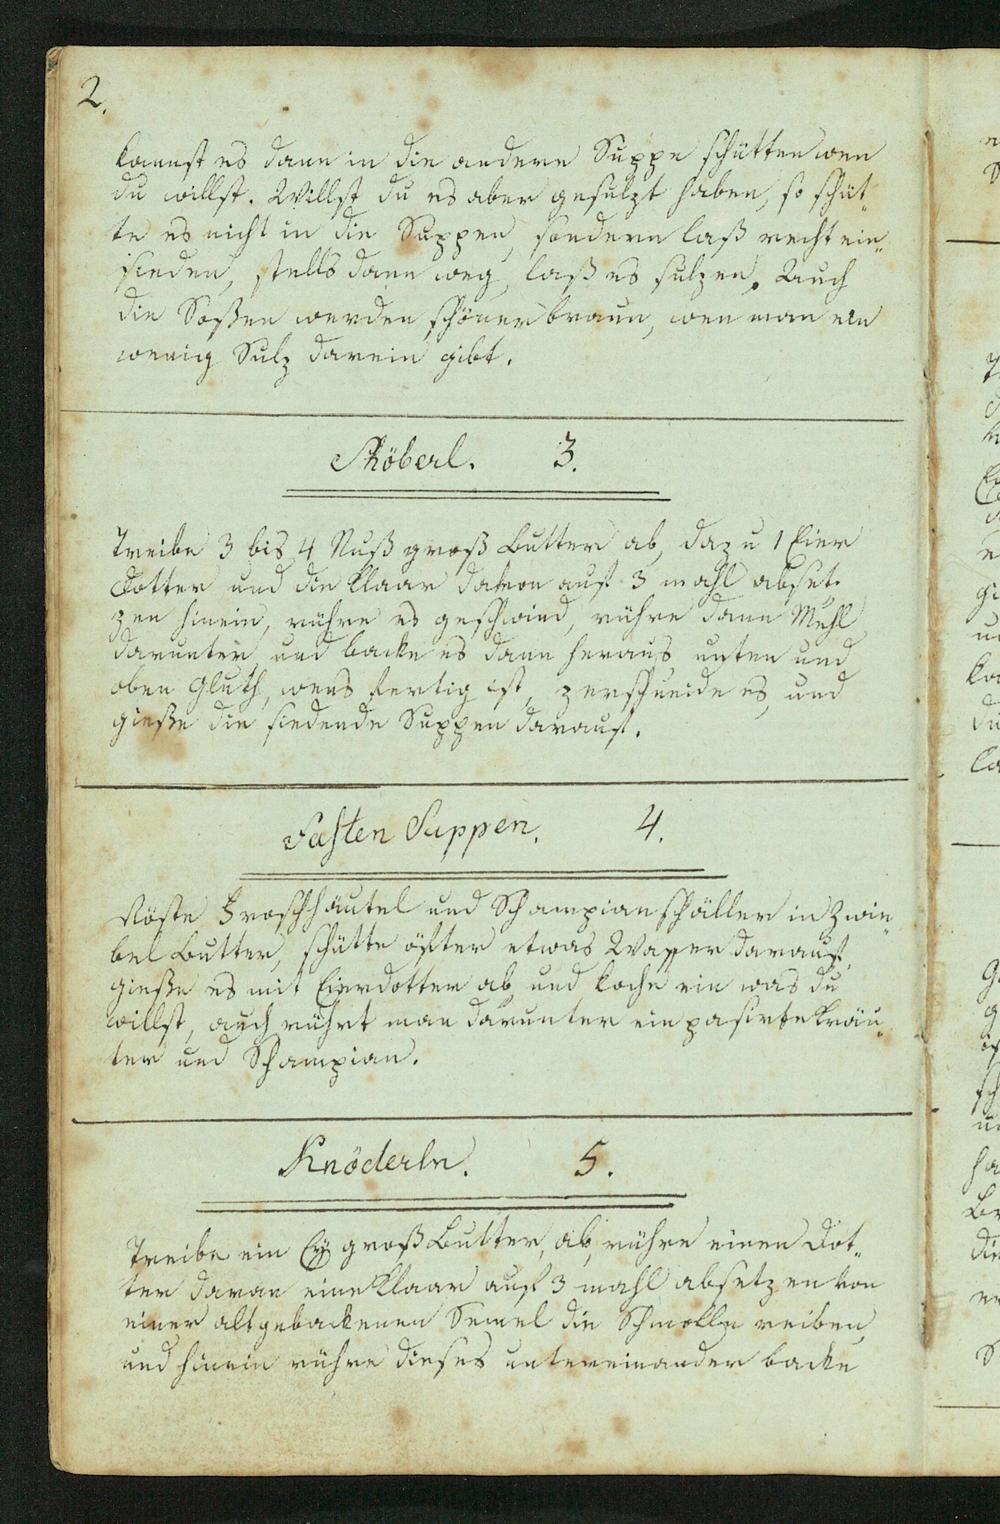 2.
kannst es dann in die andere Suppe schütten wen
du willst. Willst du es aber gesulzt haben, so schüt„
te es nicht in die Suppen, sondern laß recht ein„
sieden, stells dann weg, laß es sulzen. Auch
die Soßen werden schöner braun, wen man ein
wenig Sulz darein gibt.
Schöberl. 3.
Treibe 3 bis 4 Nuß groß Butter ab, dazu 1 Eier
Dotter und die Klaar davon auf 3 mahl abset„
zen hinein, rühre es geschwind, rühre dann Mehl
darunter, und backe es dann heraus unten und
oben Gluth, wens fertig ist, zerschneide es, und
gieße die siedende Suppen darauf.
Fasten Suppen. 4.
Röste Froschhäutel und Schampianschäller in Zwie„
bel Butter, schütte öfter etwas Wasser darauf,
gieße es mit Eierdotter ab, und koche ein was du
willst, auch rührt man darunter ein pasirte Kräu„
ter und Schampian.
Knöderln. 5.
Treibe ein Ey groß Butter, ab, rühre einen Dot„
ter daran eine Klaar auf 3 mahl absetzen von
einer altgebackenen Semel die Schmolln reiben,
und hinein rühre dieses untereinander backe